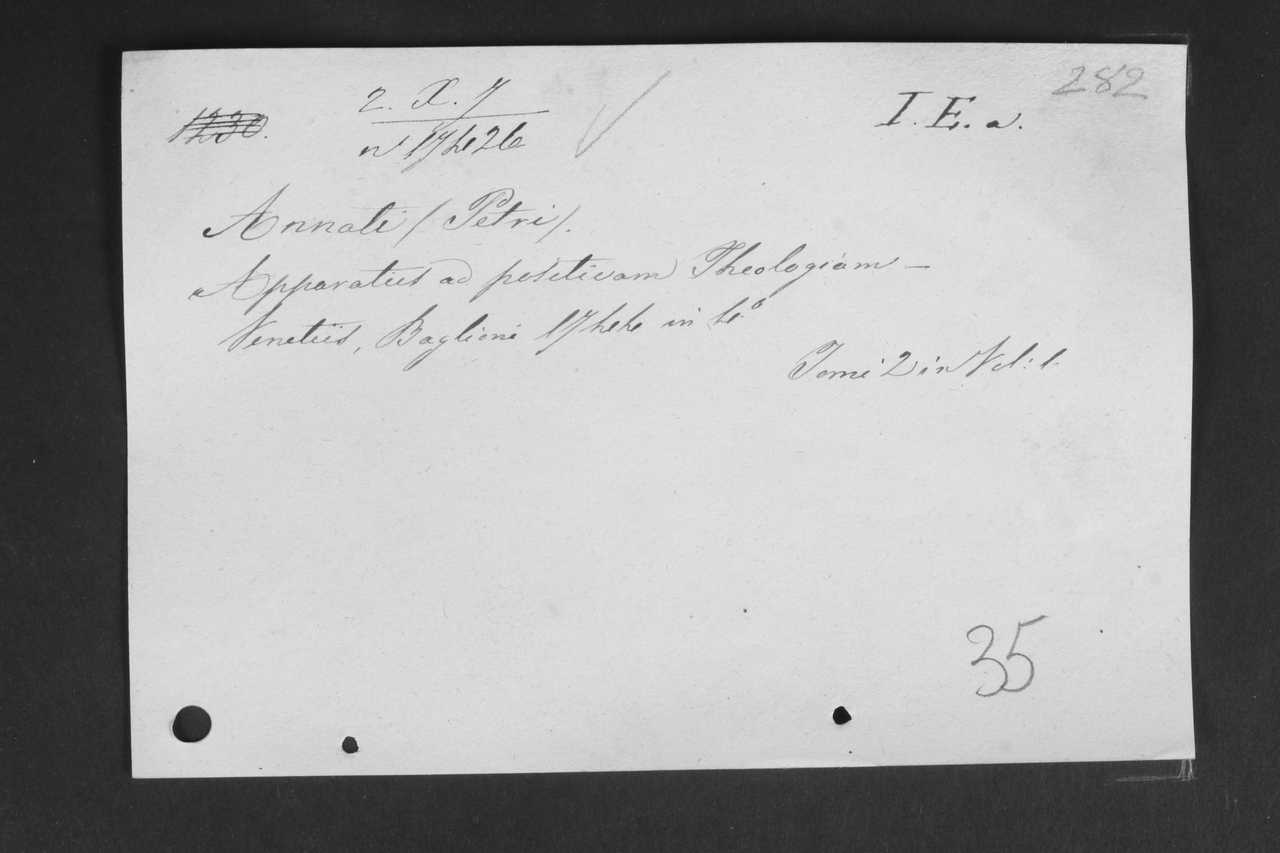 282
1230.
2. X. 7
I. E. a.
n° 17426
Annati (Petri).
Apparatus ad positivam Theologiam —
Venetiis, Baglioni 1744 in 4°
Tomi 2 in Vol: 1.
35